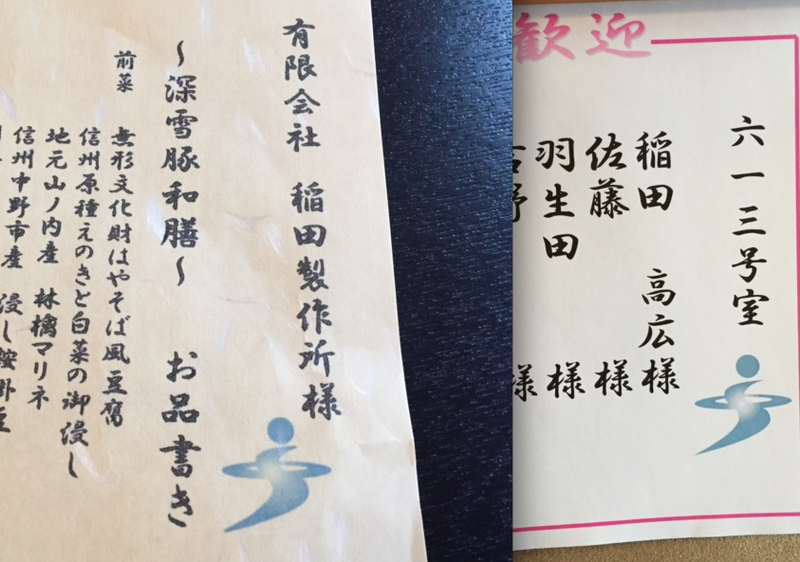 有限会社 稲田製作所様
〜深雪豚和膳〜 お品書き
前菜 無形文化財はやそば風豆腐
信州原種えのきと白菜の御浸し
地元山ノ内産 林檎マリネ
信州中野市産 浸し鞍掛豆
歓迎
六一三号室
稲田 高広様
佐藤 様
羽生田 様
野 様